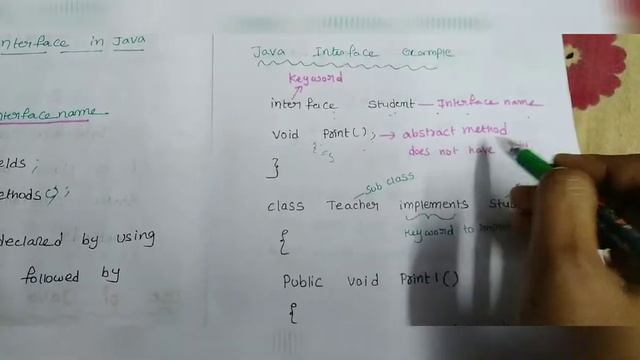 nterface in Java
nterface name
elds ;
ethods() ;
declared by using
followed by
Java Interface example
Keyword
interface Student — Interface name
void Print() ; → abstract method
does not have
}
sub class
class Teacher implements Stu
Keyword to
{
Public void Print1()
{